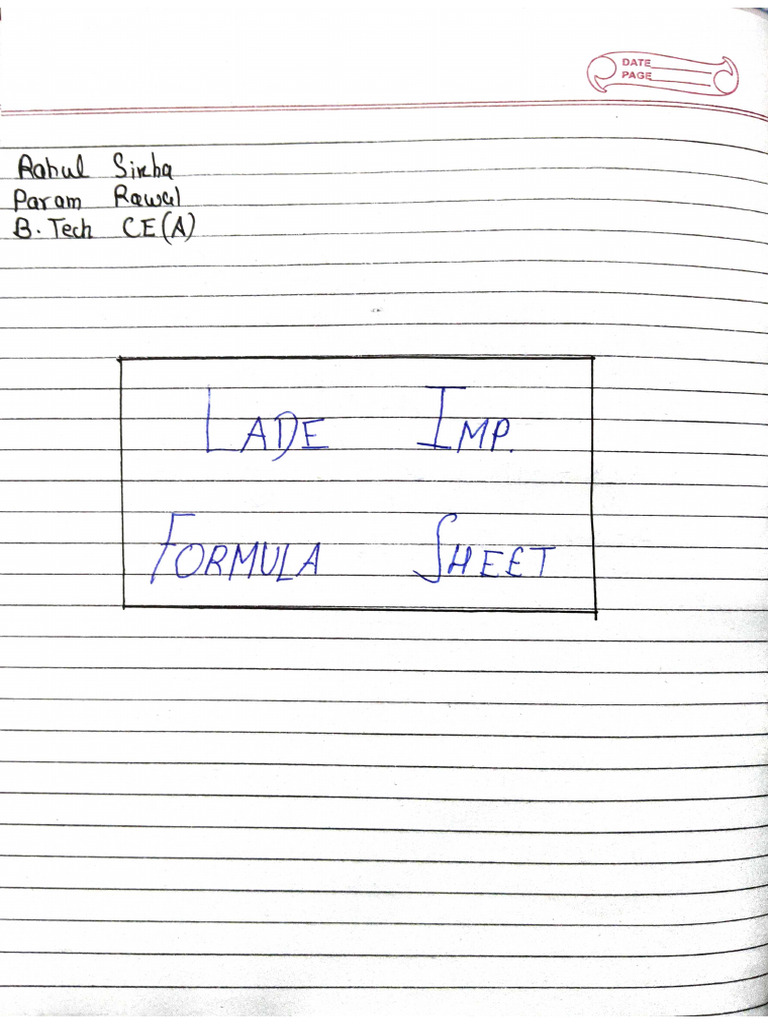 DATE
PAGE
Rahul Sinha
Param Rawal
B. Tech CE(A)
LADE IMP.
FORMULA SHEET